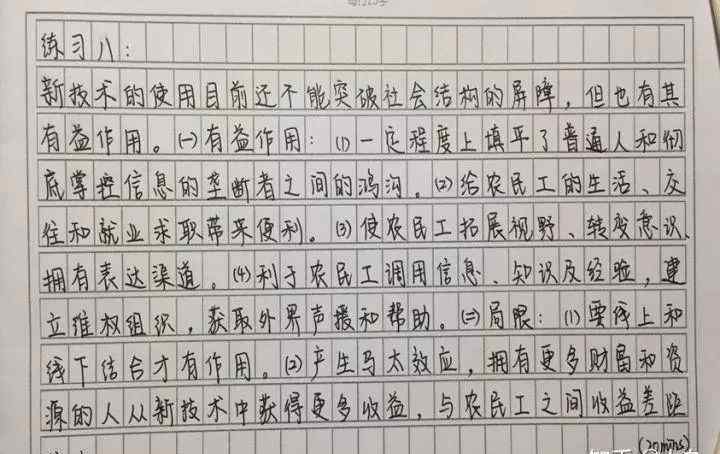 练习八：
新技术的使用目前还不能突破社会结构的屏障，但也有其
有益作用。㈠有益作用：⑴一定程度上填平了普通人和彻
底掌控信息的垄断者之间的鸿沟。⑵给农民工的生活、交
往和就业求职带来便利。⑶使农民工拓展视野、转变意识、
拥有表达渠道。⑷利于农民工调用信息、知识及经验，建
立维权组织，获取外界声援和帮助。㈡局限：⑴要线上和
线下结合才有作用。⑵产生马太效应，拥有更多财富和资
源的人从新技术中获得更多收益，与农民工之间收益差距
(20mins)